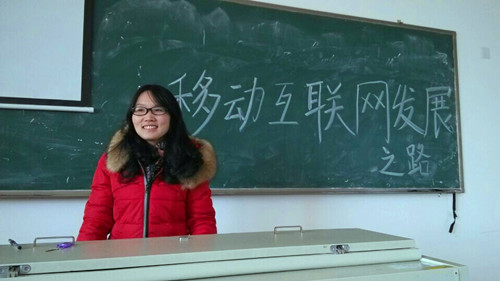 移动互联网发展
之路